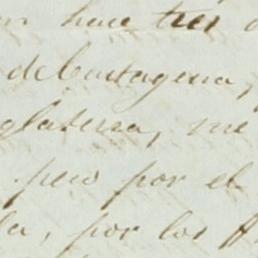 hace tres
de Cartagena,
glaterra, me
pero por el
la, por los